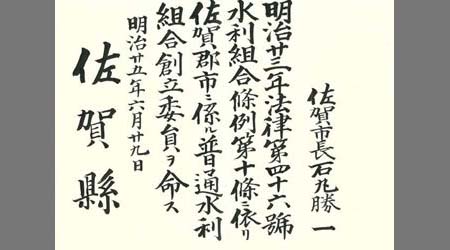 佐賀市長石丸勝一
明治廿三年法律第四十六號
水利組合條例第十條ニ依リ
佐賀郡市ニ係ル普通水利
組合創立委員ヲ命ス
明治廿五年六月廿九日
佐賀縣